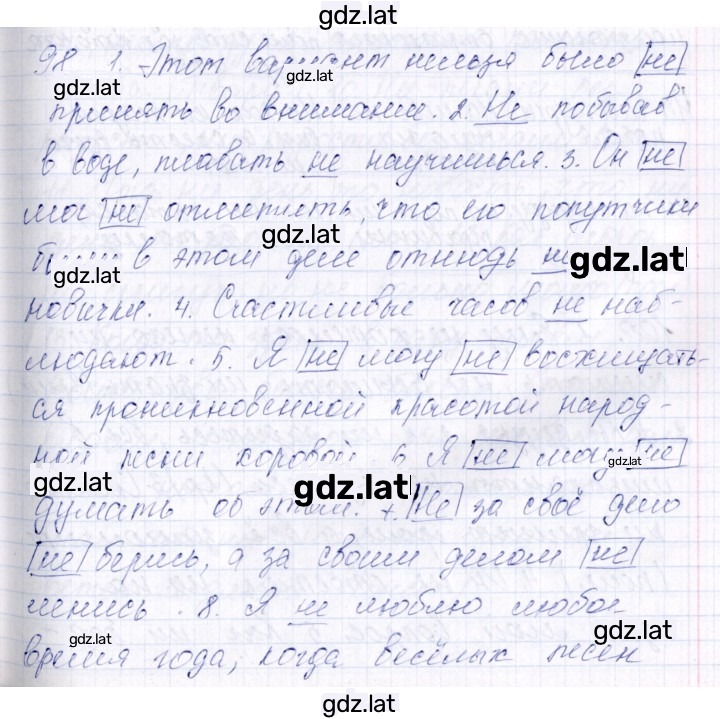 gdz.lat
98 1. Этот вариант нельзя было не
gdz.lat gdz.lat
принять во внимание. 2. Не побывав
в воде, плавать не научишься. 3. Он не
мог не отметить, что его попутчики
gdz.lat
в этом деле отнюдь не gdz.lat
новички. 4. Счастливые часов не наб-
людают. 5. Я не могу не восхищать-
ся проникновенной красотой народ-
ной песни хоровой 6 Я не могу не
gdz.lat gdz.lat gdz.lat
думать об этом. 7. Не за своё дело
не берись, а за своим делом не
ленись. 8. Я не люблю любое
gdz.lat gdz.lat
время года, когда весёлых песен
gdz.lat